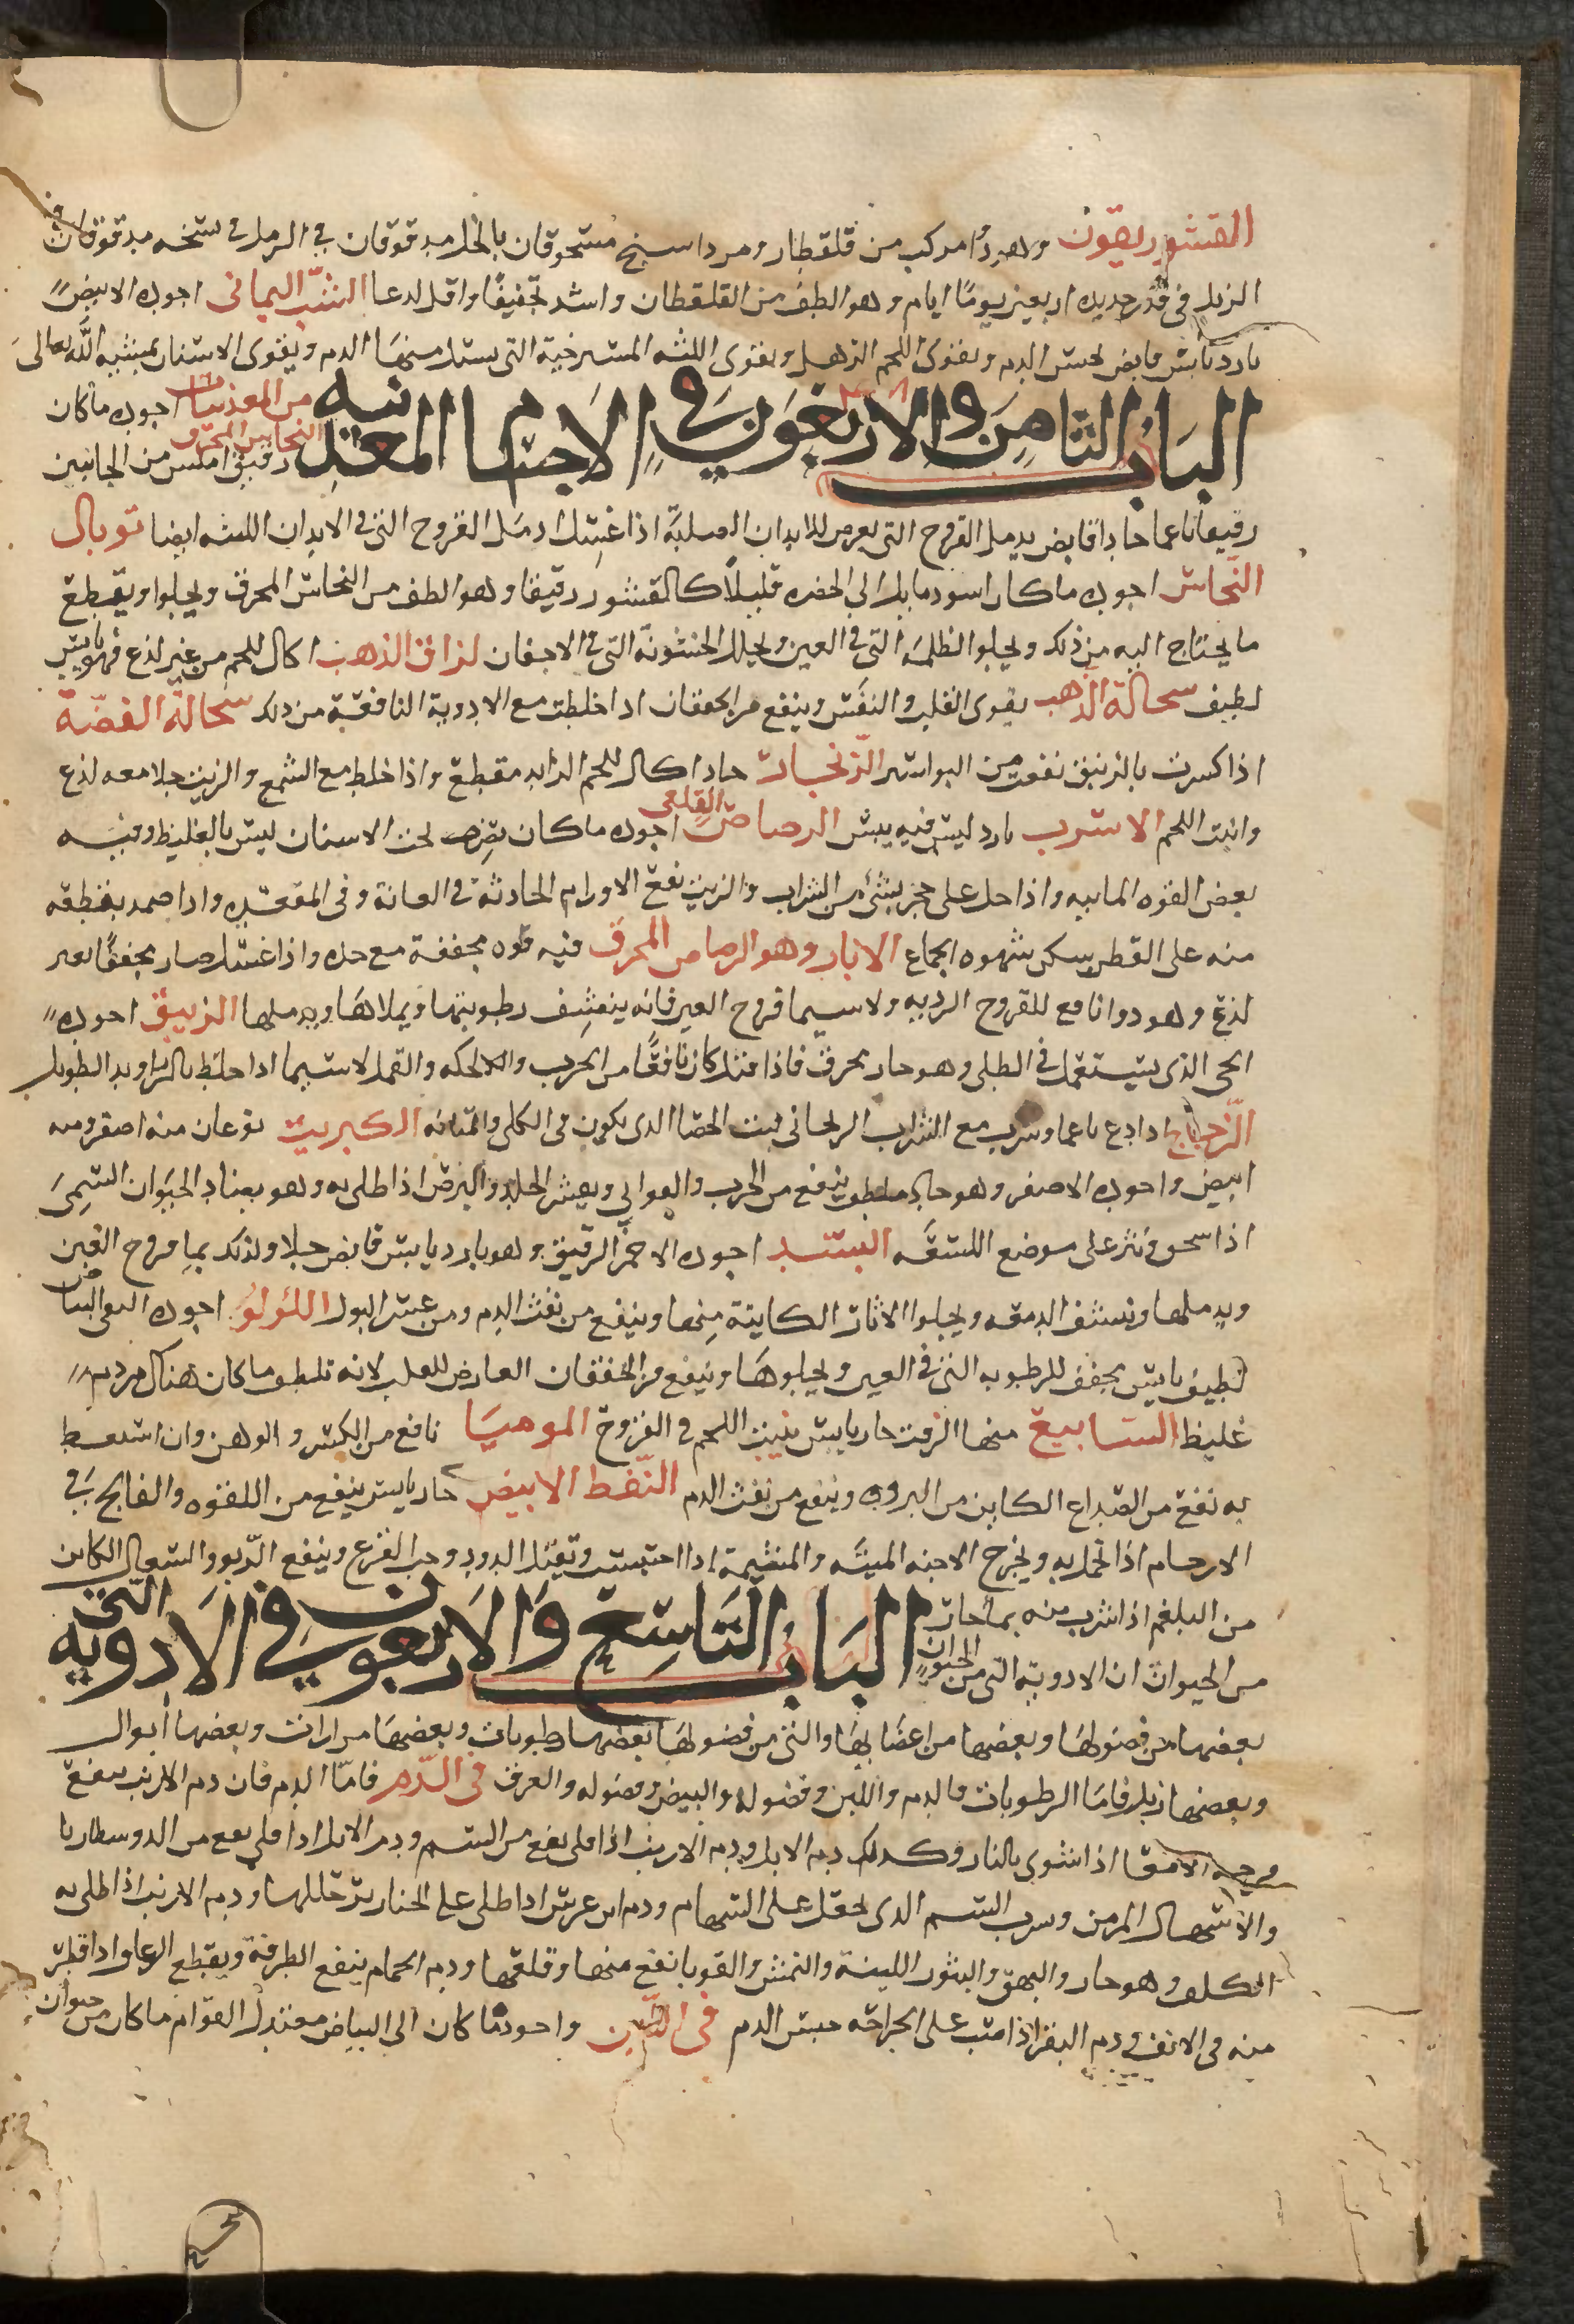 القشوريقون وهو دوا مركب من قلقطار ومرداسنج مسحوقان بالخل مدقوقان في الزبل في نسخه مدقوقان في
الزبل في قدر جديده اربعين يوما ايام وهو الطف من القلقطان واشد تجفيفا واقل لدعا الشب اليماني اجوده الابيض
بارد يابس قابض يحبس الدم ويقوى اللحم الترهل ويقوى اللثه المسترخية التي يسيل منها الدم ويقوى الاسنان بمشيه الله تعالى
الباب الثامن والاربعون في الاجسام المعدنيه
من المعدنيات اجوده ما كان
النحاس المحرق رقيق املس من الجانبين
رقيقا ناعما حادا قابض يدمل القروح التي تعرض للابدان الصلبة اذا غسل ادمل القروح التي في الابدان اللينه ايضا توبال
النحاس اجوده ما كان اسود مايل الى الخضره قليلا كالقشور رقيقا وهو الطف من النحاس المحرق ويجلوا ويقطع
ما يحتاج اليه من ذلك ويجلو الظلمه التي في العين ويحلل الخشونة التي في الاجفان لزاق الذهب اكال للحم من غير لذع فهو يابس
لطيف سحالة الذهب يقوى القلب والنفس وينفع من الخفقان اذا خلطت مع الادوية النافعة من ذلك سحالة الفضة
اذا كسرت بالزيبق نفعت من البواسير الزنجار حاد اكال للحم الزايد مقطع واذا خلط مع الشمع والزيت جلا معه لذع
وانبت اللحم الاسرب بارد ليس فيه يبس الرصاص القلعي اجوده ما كان يصر تحت الاسنان ليس بالغليظ وفيه
بعض القوه المابيه واذا حل على حجر بشئ من الشراب والزيت نفع الاورام الحادثة في العانة وفي المقعده واذا ضمد بقطعه
منه على القطن يسكن شهوه الجماع الابار وهو الرصاص المحرق فيه قوه مجففة مع حده واذا غسل صار مجففا بغير
لذع وهو دوا نافع للقروح الرديه ولا سيما قروح العين فانه ينشف رطوبتها ويملاها ويدملها الزيبق اجوده
الحي الذي يستعمل في الطلى وهو حار محرق فاذا قتل كان نافعا من الجرب والحكه والقمل لا سيما اذا خلط بالزراوند الطويل
الزجاج اذا دع ناعما وشرب مع الشراب الريحاني فتت الحصا الذي يكون في الكلى والمثانه الكبريت نوعان منه اصفر ومنه
ابيض واجوده الاصفر وهو حار ملطف ينفع من الجرب والقوابي ويقشر الجلد والبرص اذا طلى به وهو بعناد الحيوان السمي
اذا سحق ونثر على موضع اللسعه البسد اجوده الاحمر الرقيق وهو بارد يابس قابض جلا ولذلك يملا قروح العين
ويدملها وينشف الدمعه ويجلوا الاثار الكاينة منها وينفع من نفث الدم ومن عسر البول اللؤلؤ اجوده النقي البياض
لطيف يابس يجفف للرطوبه التي في العين ويجلوها وينفع من الخفقان العارض للقلب لانه تلطف ما كان هناك من دم
غليظ السابيع منها الزفت حار يابس ينبت اللحم في القروح الموميا نافع من الكسر والوهن وان استعط
به نفع من الصداع الكاين من البروده وينفع من نفث الدم النفط الابيض حار يابس ينفع من اللقوه والفالج في
الارحام اذا تحمل به ويخرج الاجنه الميته والمشيمة اذا احتبست ويقتل الدود وحب القرع وينفع الربو والسعال الكاين
من البلغم اذا شرب منه بما حار
الباب التاسع والاربعون في الادويه التي
من الحيوان ان الادوية التي من الحيوان
بعضها من فضولها وبعضها من اعضايها والتي من فضولها بعضها رطوبات وبعضها مرارات وبعضها ابوال
وبعضها زبل فاما الرطوبات فالدم واللبن وفضوله والبيض وفضوله والعرق في الدم فاما الدم فان دم الارنب ينفع
قرحه الامعا اذا شوى بالنار وكذلك دم الايل ودم الارنب اذا قلى نفع من السم ودم الايل اذا قلى نفع من الدوسنطاريا
والاسهال المزمن وشرب السم الذي يجعل على السهام ودم ابن عرس اذا طلى على الخنازير حللها ودم الارنب اذا طلى به
الكلف وهو حار والبهق والبثور اللينة والنمش والقوبا نفع منها وقلعها ودم الحمام ينفع الطرفة ويقطع الرعاف اذا قطر
منه في الانف ودم البقر اذا صب على الجراحه حبس الدم في اللبن واجوده ما كان الى البياض معتدل القوام ما كان من حيوان